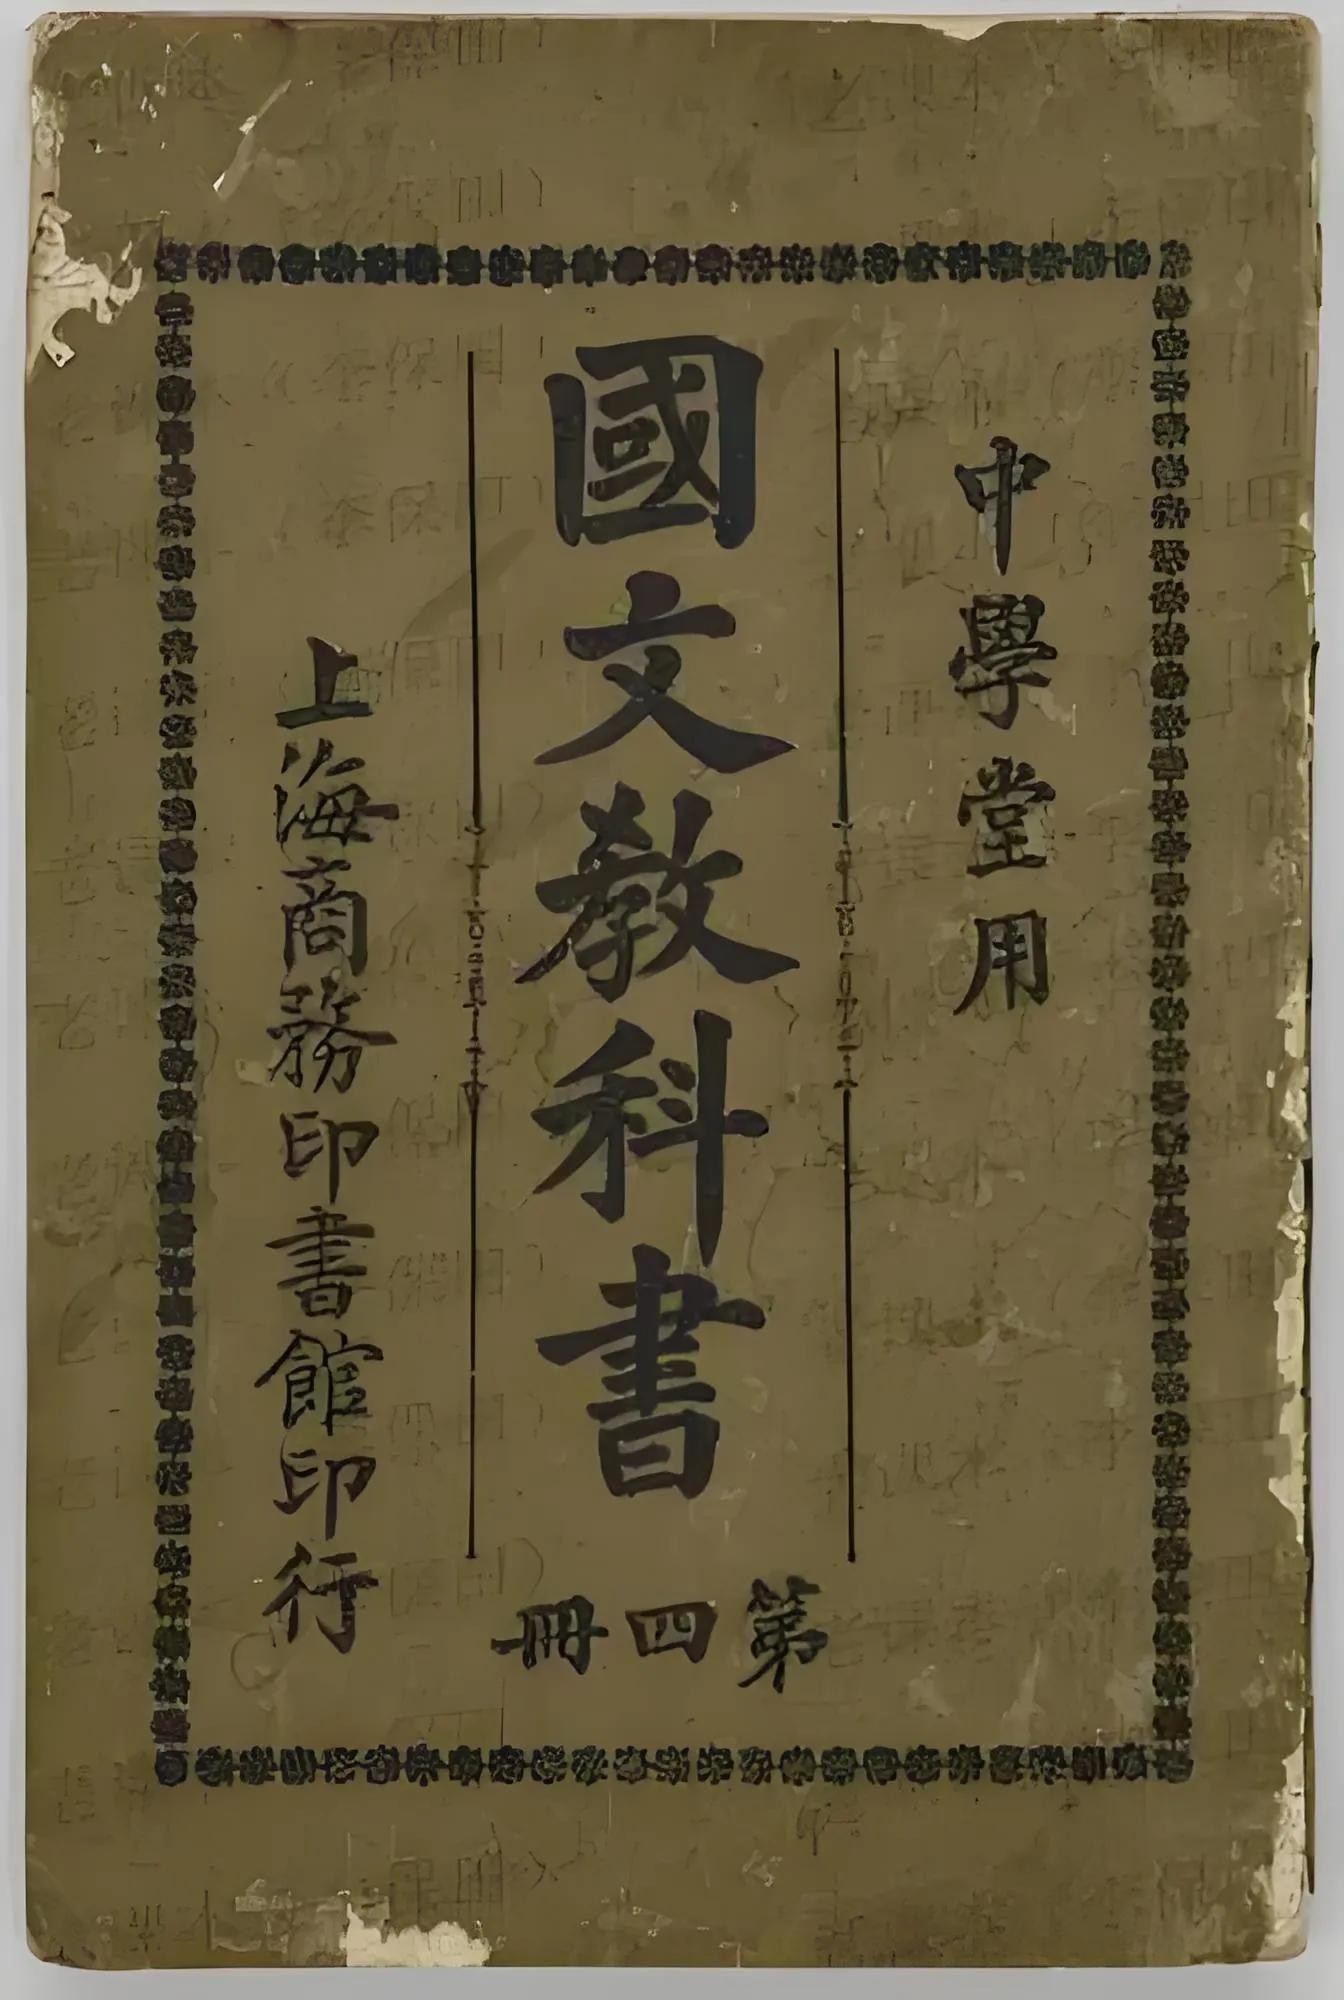 中學堂用
國文教科書
第四冊
上海商務印書館印行